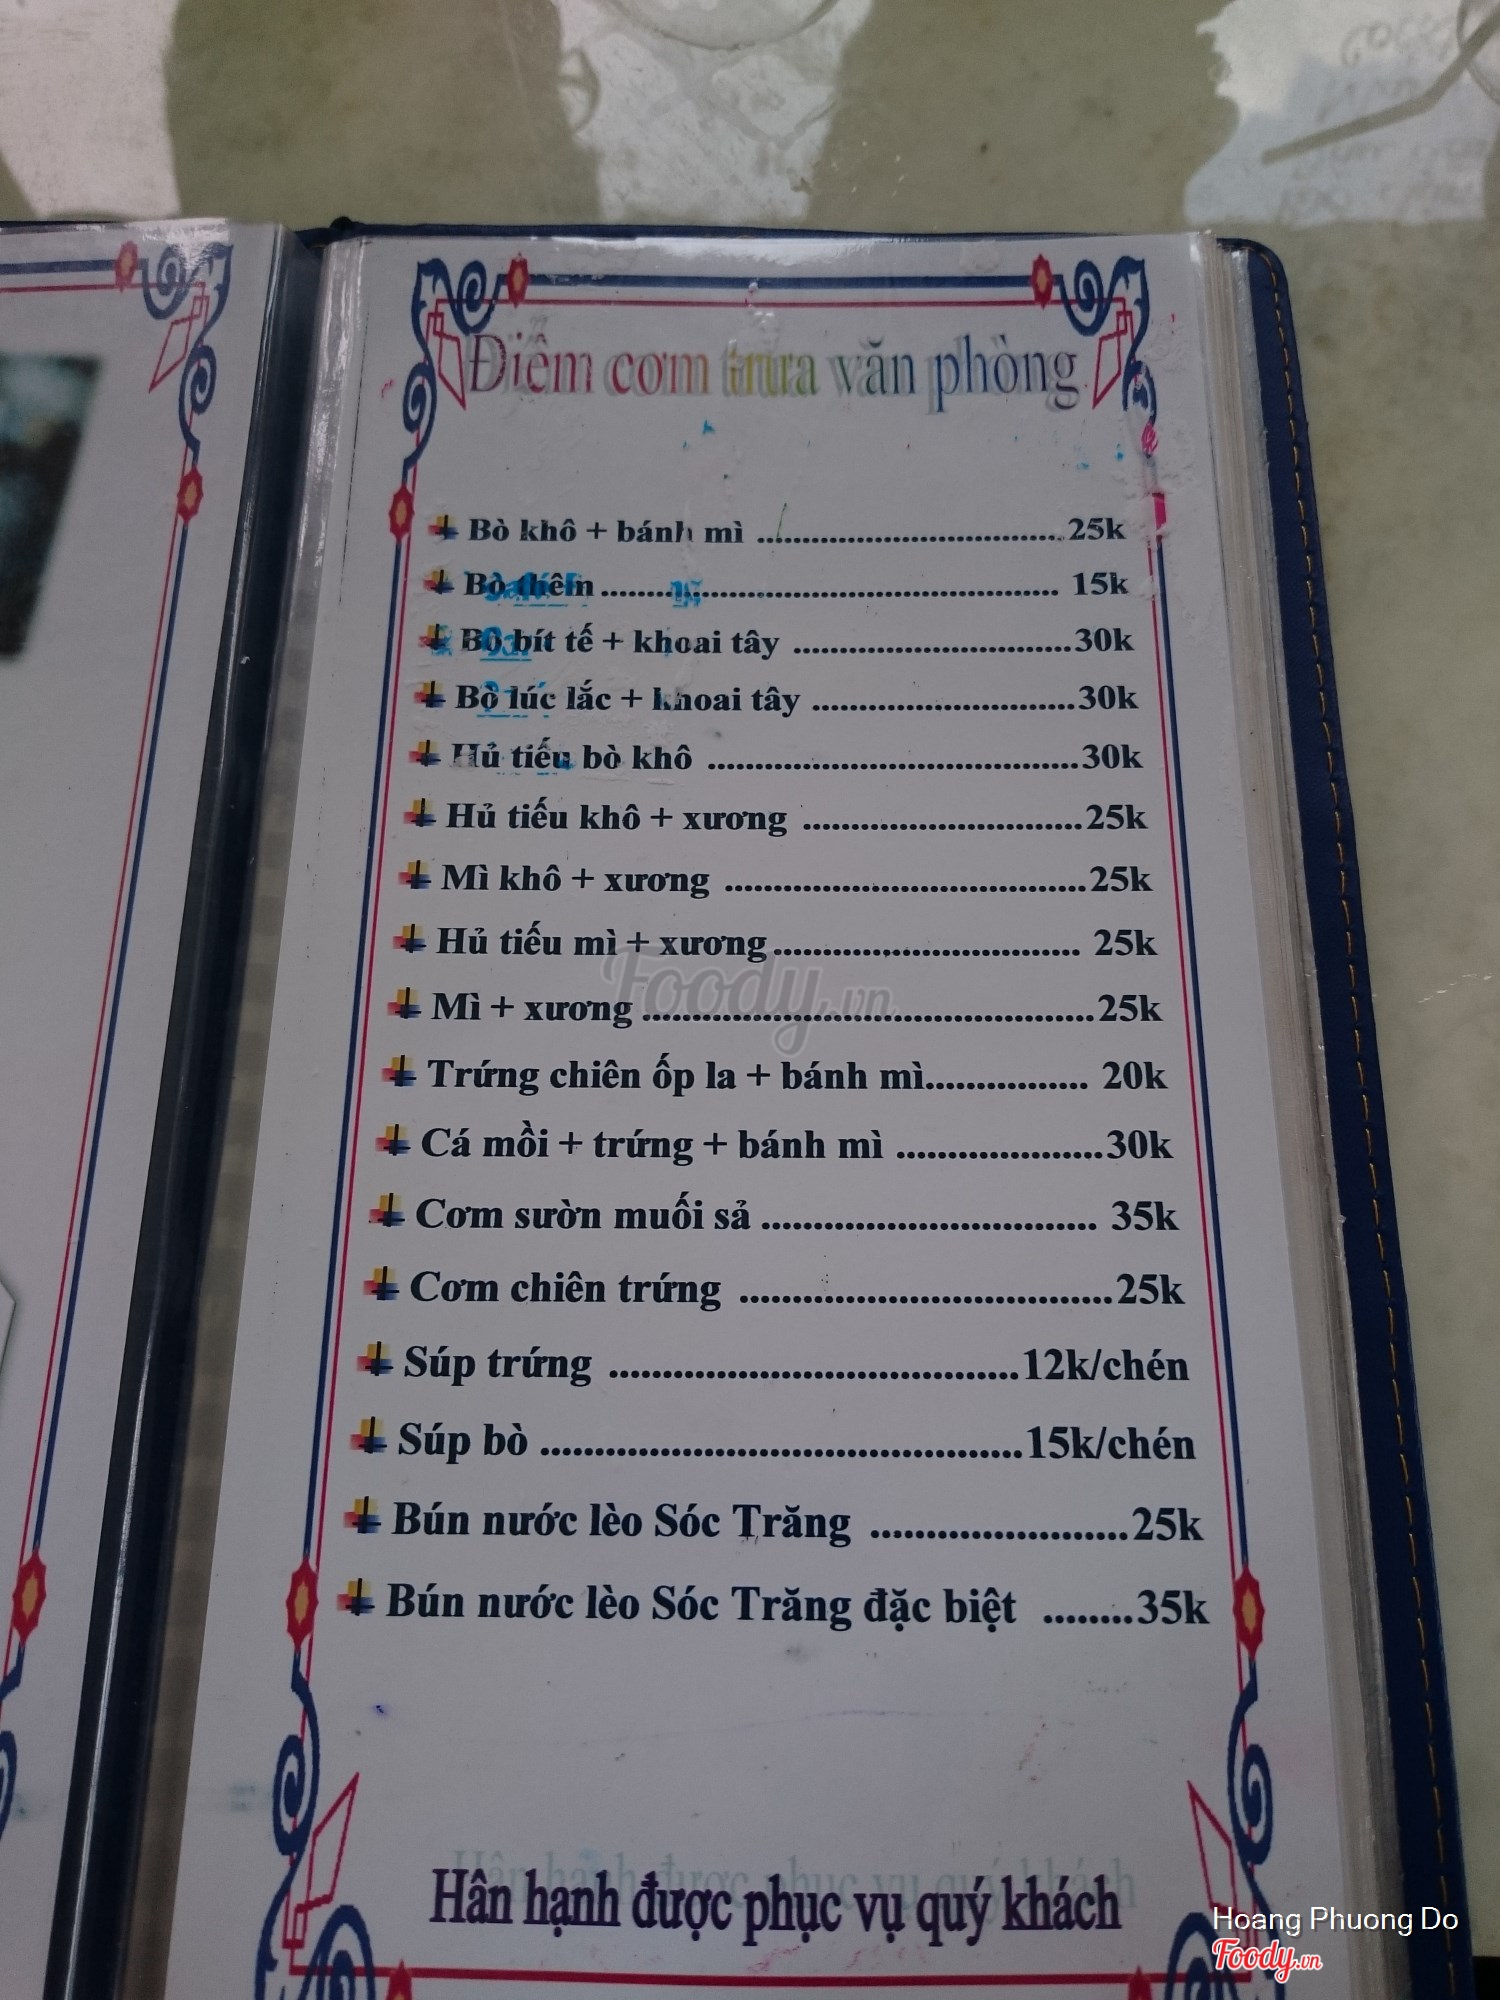 Điểm cơm trưa văn phòng
Bò khô + bánh mì ........................................25k
Bò thêm ........................................ 15k
Bò bít tế + khoai tây ........................................30k
Bò lúc lắc + khoai tây ........................................30k
Hủ tiếu bò khô ........................................30k
Hủ tiếu khô + xương ........................................25k
Mì khô + xương ........................................25k
Hủ tiếu mì + xương........................................ 25k
Mì + xương ........................................25k
Trứng chiên ốp la + bánh mì................ 20k
Cá mồi + trứng + bánh mì ....................30k
Cơm sườn muối sả ................................ 35k
Cơm chiên trứng ...................................25k
Súp trứng ......................................12k/chén
Súp bò .............................................15k/chén
Bún nước lèo Sóc Trăng .......................25k
Bún nước lèo Sóc Trăng đặc biệt ........35k
Hân hạnh được phục vụ quý khách
Foody.vn
Hoang Phuong Do
Foody.vn